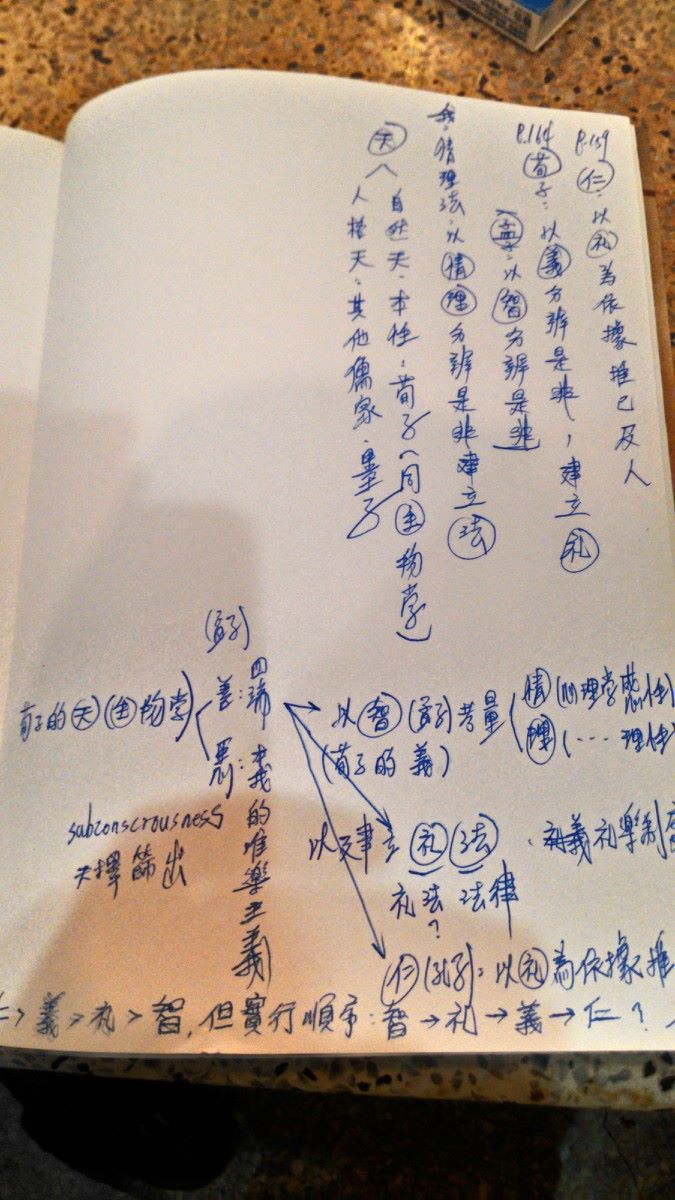 P.159
仁：以礼為依據推己及人
P.164
荀子：以義分辨是非，建立礼
(孟子：以智分辨是非)
我：情理法：以情理分辨是非建立法
天
自然天：本性：荀子(同生物学)
人格天：其他儒家、墨子
(孟子)
荀子的天(生物学)
善：四端
惡：我的唯樂主義
subconscrousness
天擇篩出
以智(孟子)考量
(荀子的義)
情(心理学感性)
理(…理性)
以建立礼(法)
礼法 法律
?
義礼樂制
仁(孔子)：以礼為依據推
仁>義>礼>智，但實行順序：智→礼→義→仁？